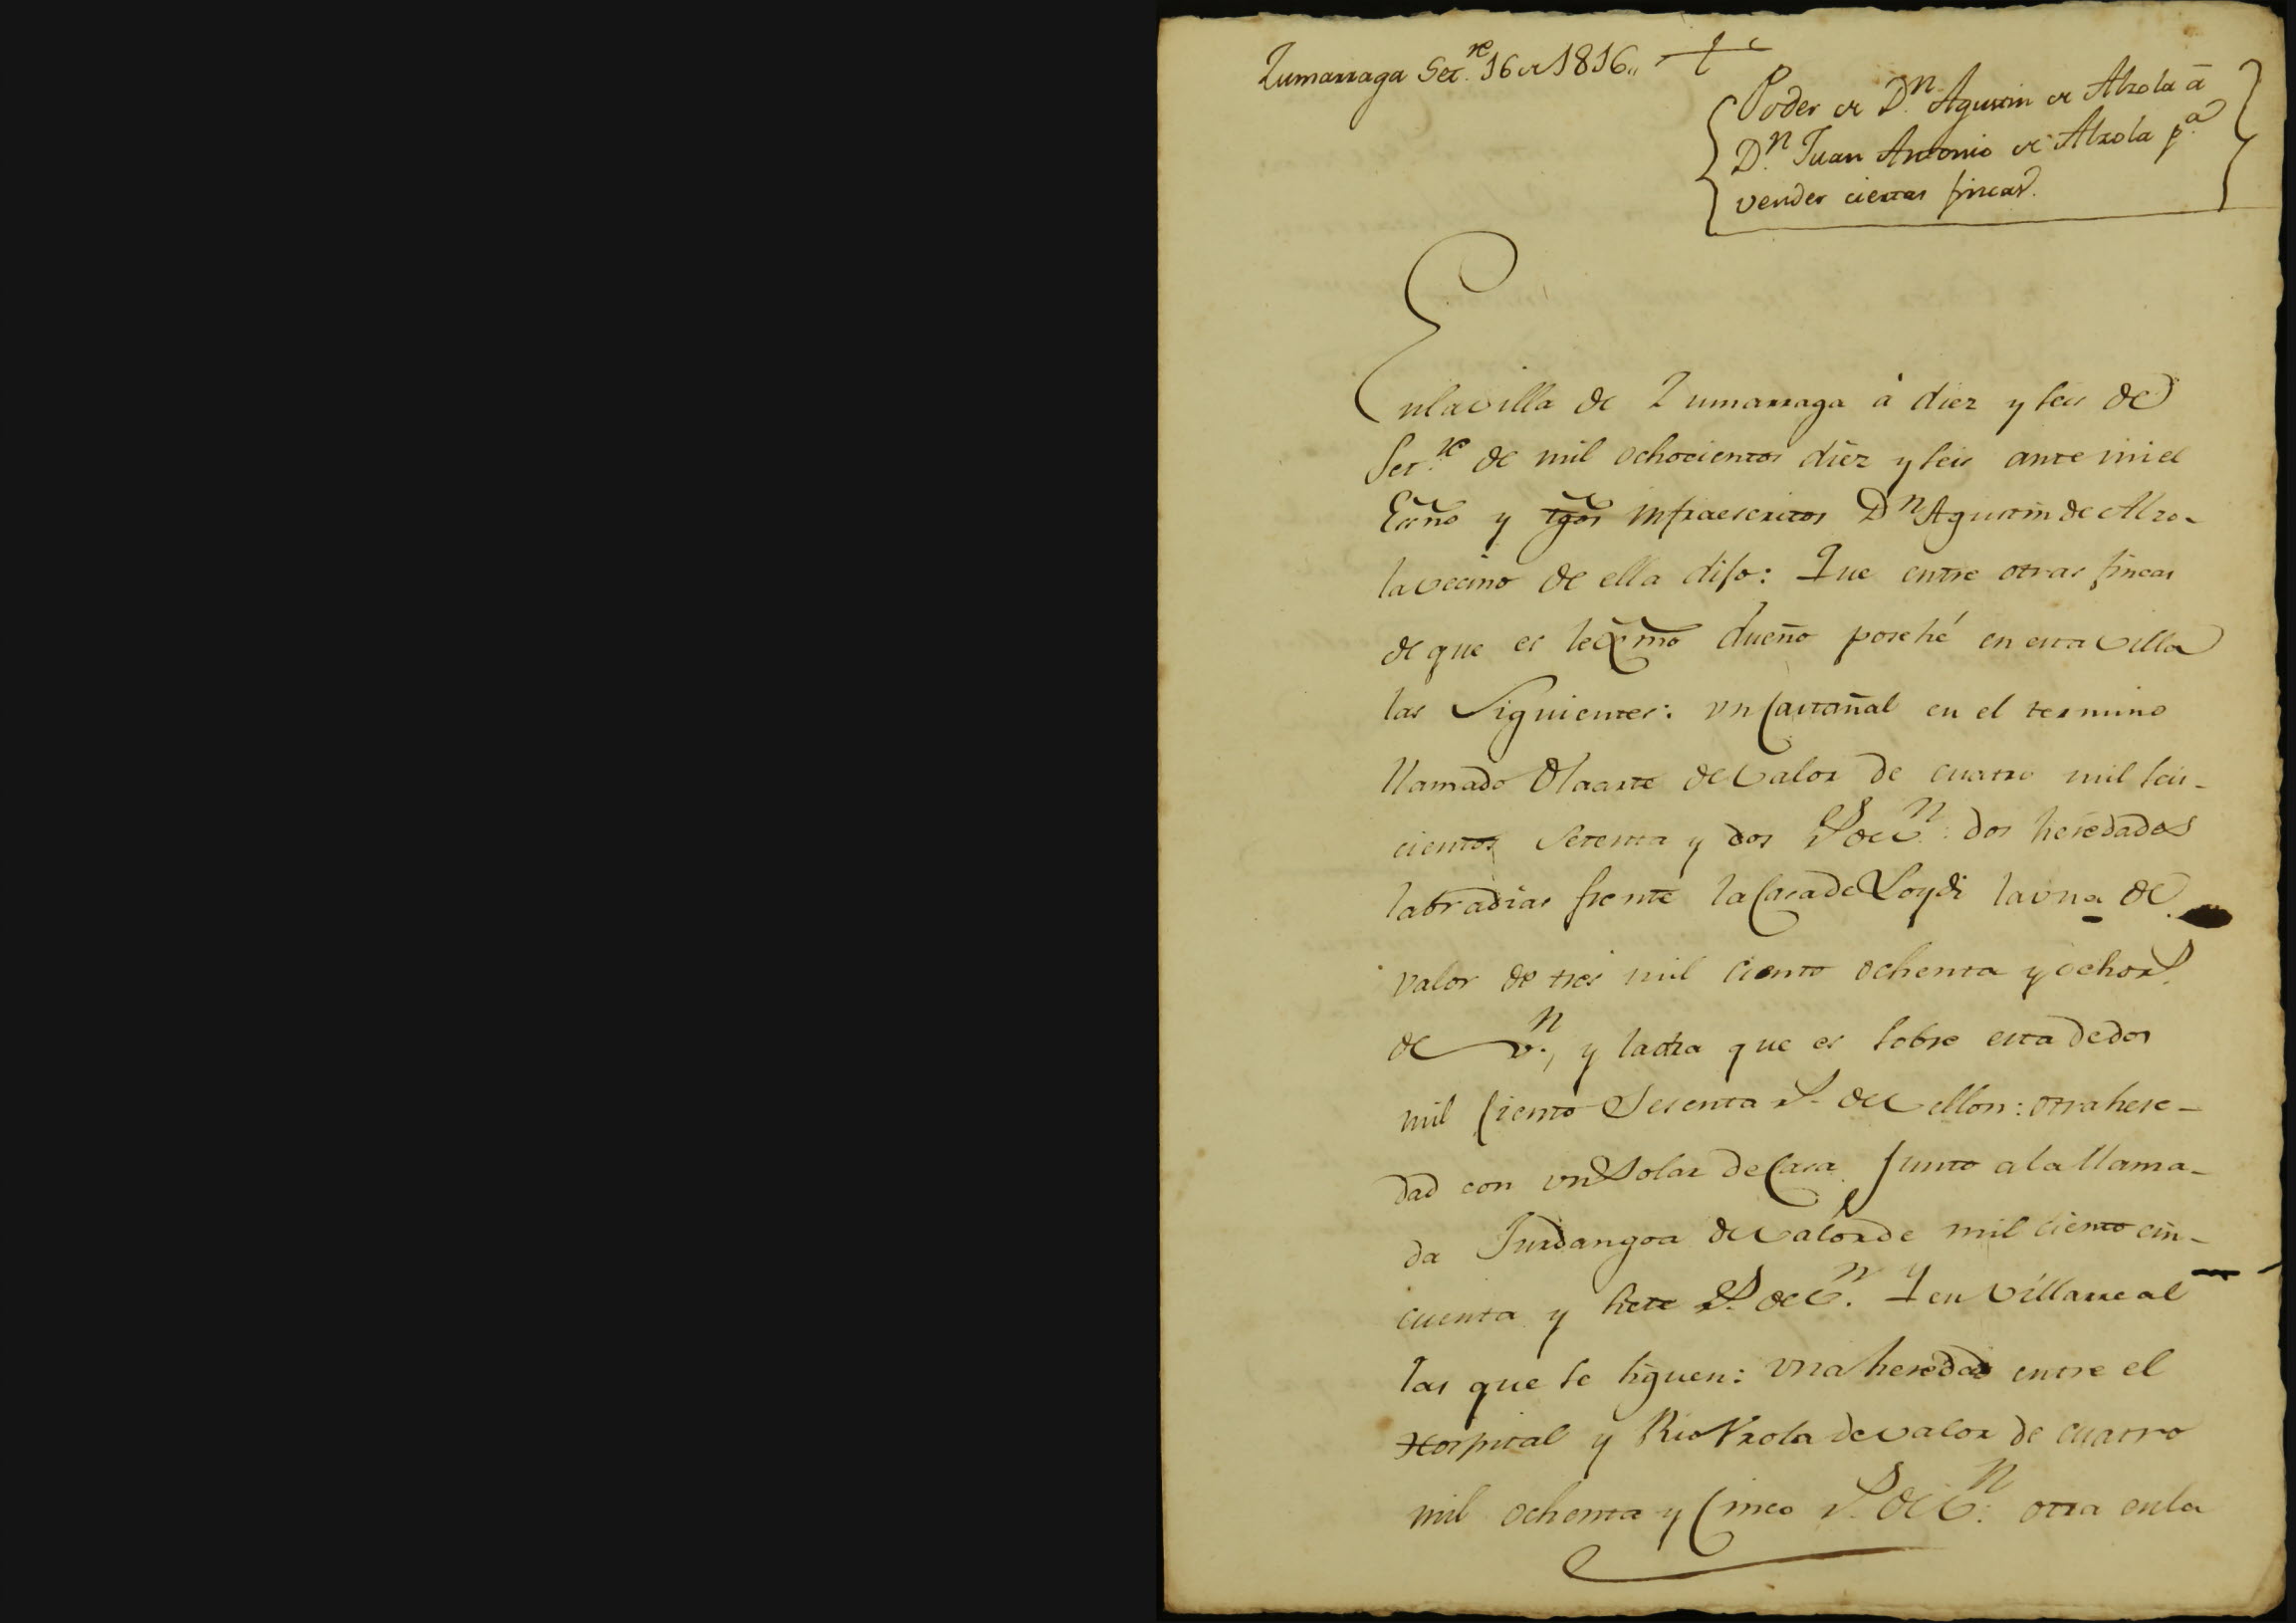 Zumarraga Set.re 16 de 1816.
Poder de D.n Agustin de Alzola á
D.n Juan Antonio de Alzola p.a
vender ciertas fincas.
En la villa de Zumarraga á diez y seis de
Set.re de mil ochocientos diez y seis ante mi el
Essno y tgos infraescritos Dn Agustin de Alzo-
la vecino de ella dijo: Que entre otras fincas
de que es lexmo dueño posehé en esta villa
las Siguientes: vn Castañal en el termino
llamado Olaarte de valor de cuatro mil seis-
cientos Setenta y dos Rs de vn: dos heredades
labradias frente la Casa de Loydi la vna de
valor de tres mil ciento ochenta y ocho rs.
de v.n, y la otra que es sobre esta de dos
mil Ciento Sesenta rs. de vellon: otra here-
dad con vn Solar de Casa junto a la llama-
da Jurdangoa de valor de mil ciento cin-
cuenta y siete Rs. de vn. Y en Villarreal
las que se siguen: vna heredad entre el
Hospital y Rio Vrola de valor de cuatro
mil ochenta y Cinco rs. de vn: otra en la